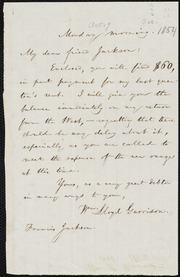 Monday morning.
1854
My dear friend Jackson:
Enclosed, you will find $60,
in part payment for my last quar-
ter's rent. I will give you the
balance immediately on my return
from the West,—regretting that there
should be any delay about it,
especially as you are called to
meet the expense of the new ranges
at this time.
Yours, as a very great debtor
in many ways to you,
Wm. Lloyd Garrison.
Francis Jackson.